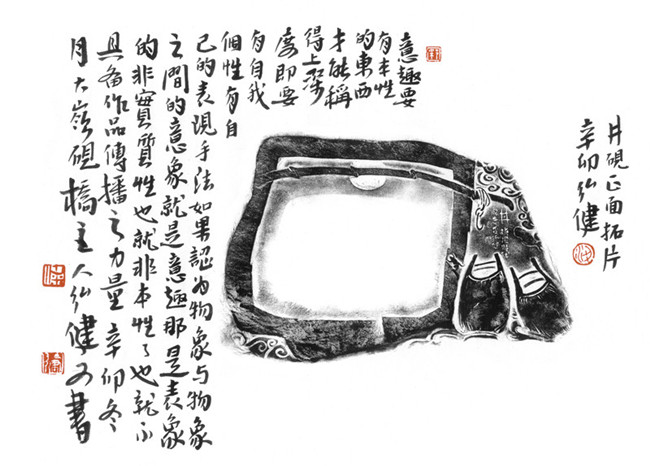 井硯正面拓片
辛卯弘健
意趣要
有本性
的東西
才能稱
得上深
度即要
有自我
個性有自
己的表現手法如果認为物象与物象
之間的意象就是意趣那是表象
的非實質性也就非本性了也就不
具备作品傳播之力量辛卯冬
月大嶺硯橋主人弘健又書